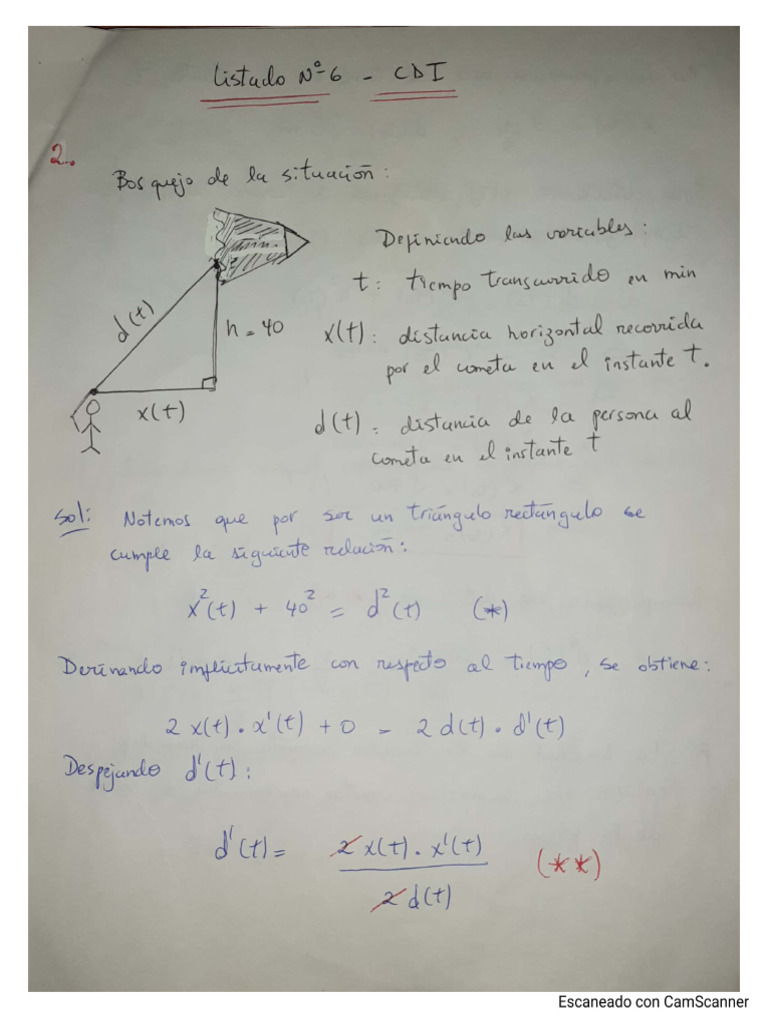 Listado Nº6 - CDI
2.
Bosquejo de la situación:
Definiendo las variables:
t: tiempo transcurrido en min
d(t)
h = 40
x(t): distancia horizontal recorrida
por el cometa en el instante t.
x(t)
d(t): distancia de la persona al
cometa en el instante t
Sol: Notemos que por ser un triángulo rectángulo se
cumple la siguiente relación:
x²(t) + 40² = d²(t) (*)
Derivando implícitamente con respecto al tiempo, se obtiene:
2 x(t) · x'(t) + 0 = 2 d(t) · d'(t)
Despejando d'(t):
d'(t) = 2 x(t) · x'(t) (**)
2 d(t)
Escaneado con CamScanner